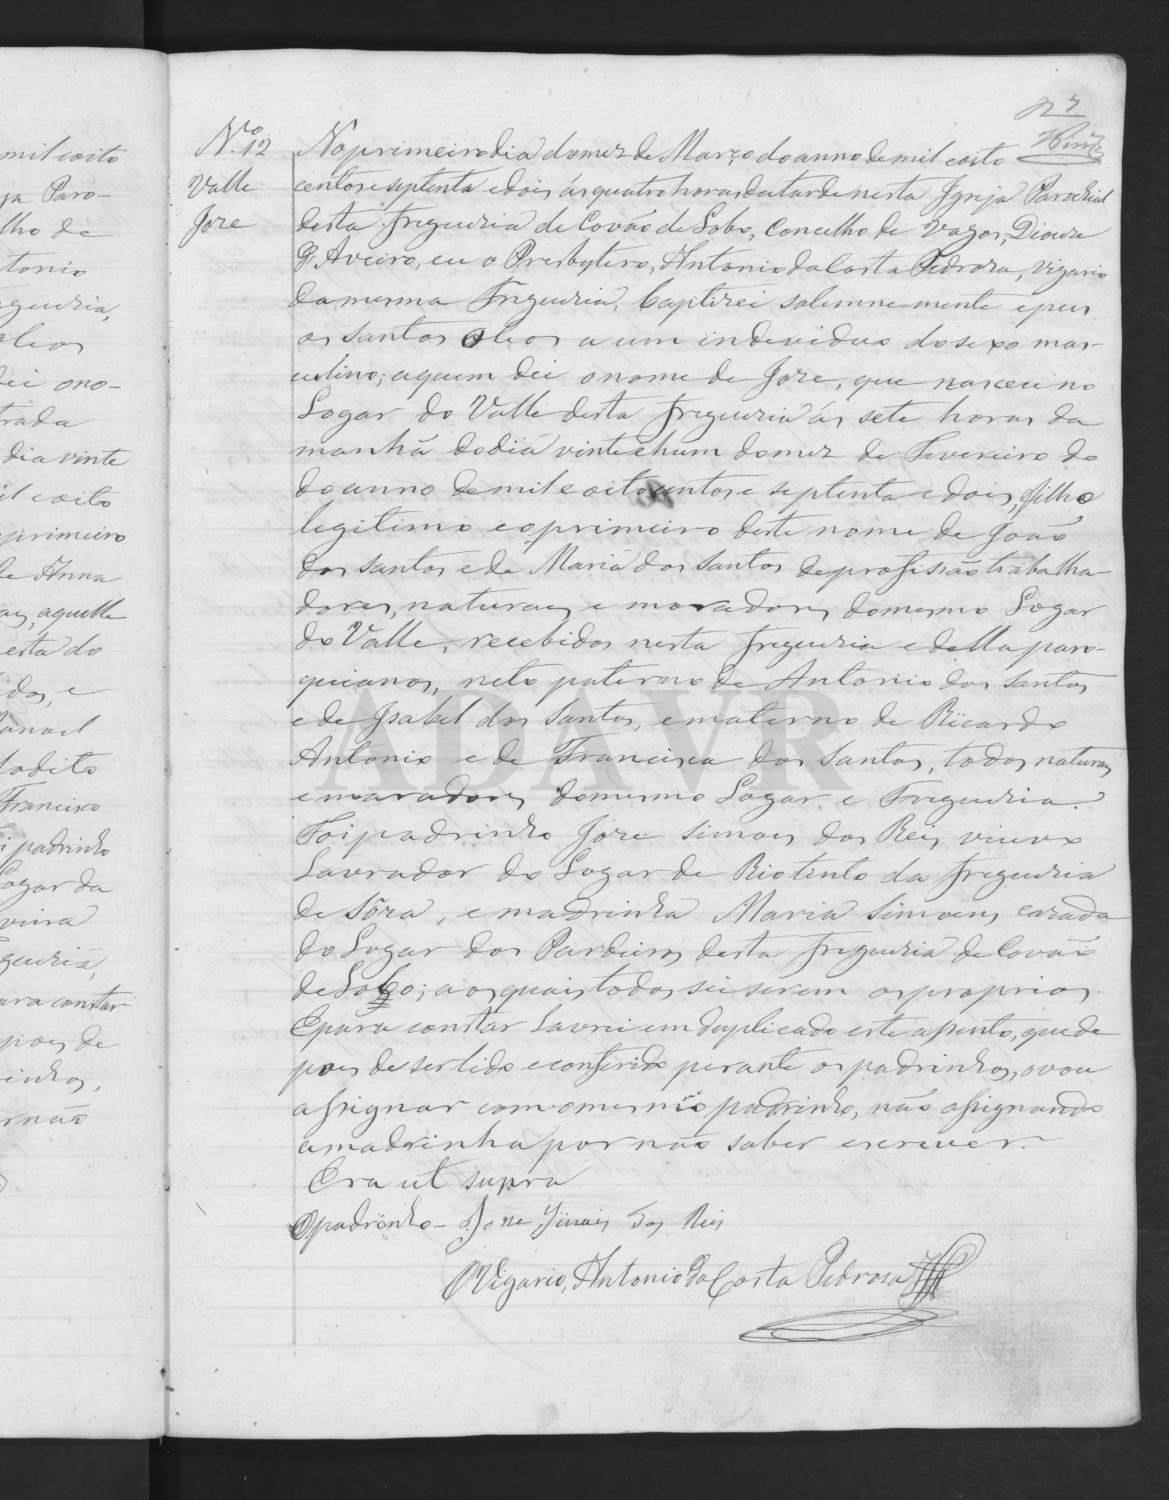 N.º 12
Valle
Jose
No primeiro dia do mez de Março do anno de mil e oito
centos e septenta e dois ás quatro horas da tarde nesta Igreja Parochial
desta Freguezia de Covão de Lobo, Concelho de Vagos, Diocese
d'Aveiro, eu o Presbytero, Antonio da Costa Pedrosa, Vigario
da mesma Freguezia, baptizei solemne-mente e pus
os santos oleos a um individuo do sexo mas-
culino; a quem dei o nome de Jose, que nasceu no
Logar do Valle desta freguezia ás sete horas da
manhã do dia vinte e hum do mez de Fevereiro do
do anno de mil e oitocentos e septenta e dois, filho
legitimo e o primeiro deste nome de João
dos Santos e de Maria dos Santos de profissão trabalha-
dores, naturaes e moradores do mesmo Logar
do Valle, recebidos nesta freguezia e della paro-
quianos, neto paterno de Antonio dos Santos
e de Isabel dos Santos, e materno de Ricardo
Antonio e de Francisca dos Santos, todos naturaes
e moradores do mesmo Logar e Freguezia.
Foi padrinho Jose Simoes dos Reis viuvo
Lavrador do Logar de Rio tinto da freguezia
de Sôza, e madrinha Maria Simoens cazada
do Logar dos Pardeiros desta freguezia de Covão
de Lobo; aos quaes todos sei serem os proprios.
E para constar lavrei em duplicado este assento, que de
pois de ser lido e conferido perante os padrinhos, o vou
assignar com o mesmo padrinho, não assignando
a madrinha por não saber escrever.
Era ut supra
O padrinho - Jose Simois dos Reis
O Vigario, Antonio da Costa Pedrosa
ADAVR
mil e oito
ja Paro-
lho de
tonio
eguezia,
oleos
dei o no-
trada
dia vinte
il e oito
primeiro
de Anna
aes, aquelle
esta do
idos, e
Manoel
Francisco
i padrinho
Logar da
guezia,
ara constar
pois de
inhos,
r não